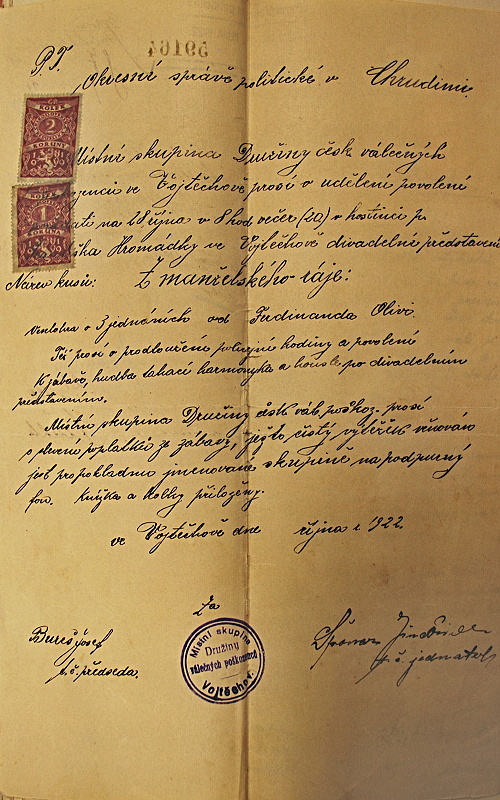 59164
P.T.
Okresní správě politické v Chrudimi.
Místní skupina Družiny česk. válečných
ve Vojtěchově prosí o udělení povolení
na 28 října v 8 hod večer (20) v hostinci p.
Hromádky ve Vojtěchově divadelní představení
Název kusu: Z manželského ráje:
Veselohra o 3 jednáních od Ferdinanda Olivi.
Též prosí o prodloužení policejní hodiny a povolení
k zábavě, hudba tahací harmonyka a housle po divadelním
představením.
Místní skupina Družiny česk. vál. poškoz. prosí
o slevení poplatků ze zábavy, ježto čistý výtěžek věnován
jest pro pokladnu jmenované skupině na podpůrný
fon. Knížka a kolky přiloženy.
ve Vojtěchově dne října r. 1922.
Za
Bureš Josef
t. č. předseda.
t. č. jednatel
Místní skupina
Družiny
válečných poškozenců
Vojtěchov.
KOLEK
2
KORUNY
KOLEK
1
KORUNA